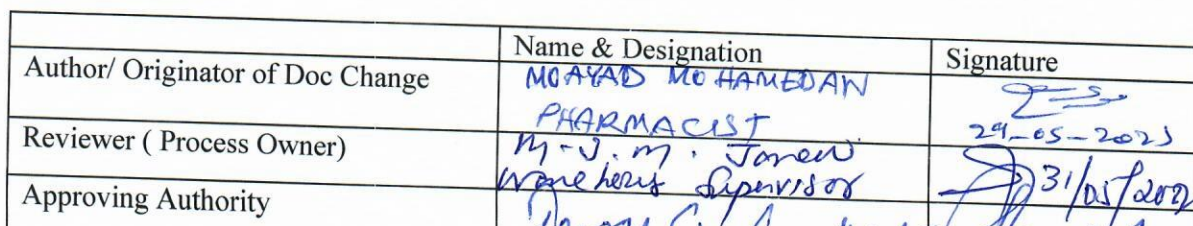 Name & Designation Signature
Author/ Originator of Doc Change MOAYAD MOHAMEDAW
PHARMACIST 29-05-2023
Reviewer ( Process Owner) M.J.M.
Supervisor 31/05/202
Approving Authority